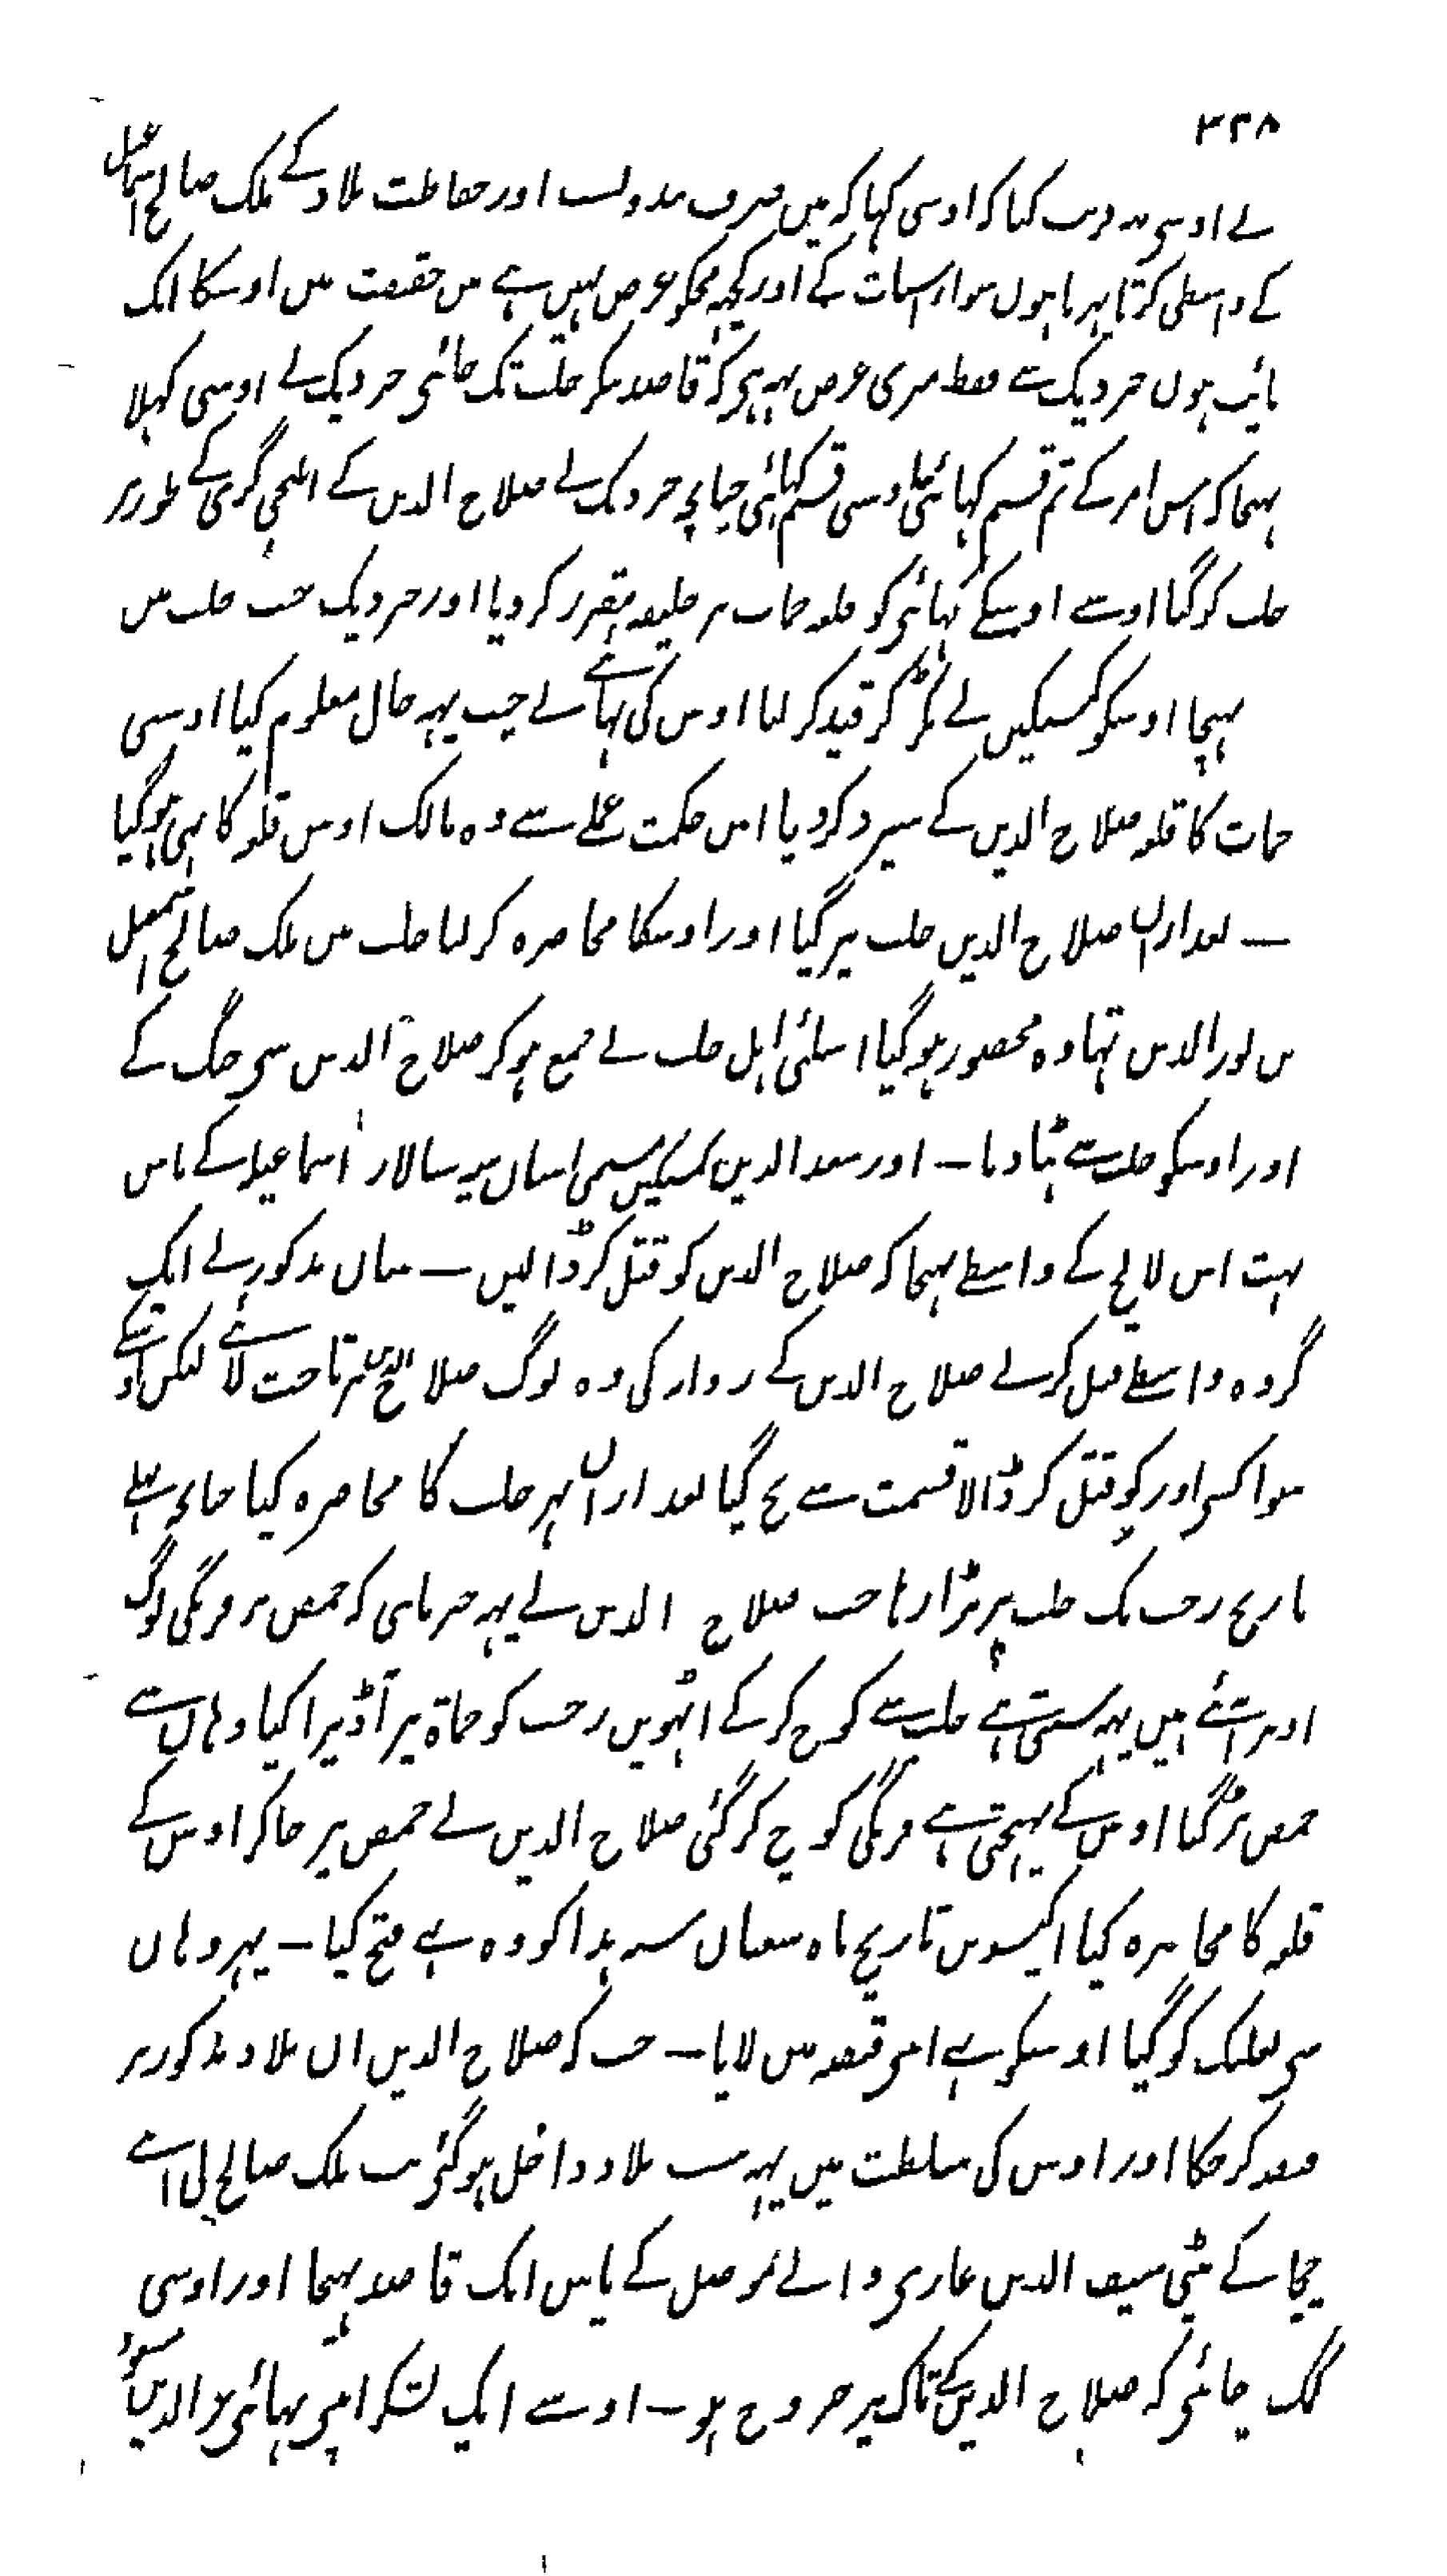 ۳۳۸
نے اوسی یہ فریب کیا کہ اوسی کہا کہ میں صرف بندوبست اور حفاظت بلاد کے ملک صالح اسماعیل
کے واسطی کرتا پہرتا ہوں سوا اس بات کے اور کچہہ مجکو غرض نہیں ہے میں حقیقت میں اوسکا ایک
نائب ہوں جردیک سے فقط میری غرض یہہ ہی کہ قاصد بنکر حلب تک جائی جردیک نے اوسی کہلا
بہیجا کہ اس امر کے تم قسم کہائی اوسی قسم کہائی چنانچہ جردیک نے صلاح الدین کے ایلچی گری کے طور پر
حلب کو گیا اوسے اوسکے بہائی کو قلعہ حمات پر خلیفہ مقرر کر دیا اور جردیک جب حلب میں
پہنچا اوسکو کمستکین نے پکڑ کر قید کر لیا اوس کی بہائے نے جب یہہ حال معلوم کیا اوسی
حمات کا قلعہ صلاح الدین کے سپرد کر دیا اس حکمت عملے سے وہ مالک اوس قلعہ کا بہی ہو گیا
ـ بعد ازاں صلاح الدین حلب پر گیا اور اوسکا محاصرہ کر لیا حلب میں ملک صالح اسمعیل
بن نور الدین تہا وہ محصور ہو گیا اسلئی اہل حلب نے جمع ہو کر صلاح الدین سی جنگ کے
اور اوسکو حلب سے ہٹا دیا ــ اور سعد الدین کمستکین مسمی سنان سپہ سالار اسماعیلیہ کے پاس
بہت اس لالچ کے واسطے بہیجا کہ صلاح الدین کو قتل کر ڈالیں ــ سنان مذکور نے ایک
گروہ واسطے قتل کرنے صلاح الدین کے روانہ کی وہ لوگ صلاح الدین پر تاخت لائے لیکن اوسکے
سوا کسی اور کو قتل کر ڈالا قسمت سے بچ گیا بعد ازاں پہر حلب کا محاصرہ کیا چنانچہ پہلے
تاریخ رجب تک حلب پر پڑا رہا جب صلاح الدین نے یہہ خبر پائی کہ حمص پر فرنگی لوگ
اوتر آئے ہیں یہہ سنتی ہے حلب سے کوچ کر کے اٹہویں رجب کو حماۃ پر آ ڈیرا کیا وہاں سے
حمص پر گیا اوس کے پہنچتی ہے فرنگی کوچ کر گئی صلاح الدین نے حمص پر جا کر اوس کے
قلعہ کا محاصرہ کیا اکیسویں تاریخ ماہ شعبان سنہ ہذا کو وہ بہے فتح کیا ــ پہر وہاں
سی بعلبک کو گیا اوسکو بہے اپنی قبضہ میں لایا ــ جب کہ صلاح الدین ان بلاد مذکور پر
قبضہ کر چکا اور اوس کی سلطنت میں یہہ سب بلاد داخل ہو گئی تب ملک صالح نی اپنے
چچا کے بیٹی سیف الدین غازی والے موصل کے پاس ایک قاصد بہیجا اور اوسی
کمک چاہئی کہ صلاح الدین کے تاک پر خروج ہو ــ اوسے ایک لشکر اپنی بہائی عز الدین مسعود